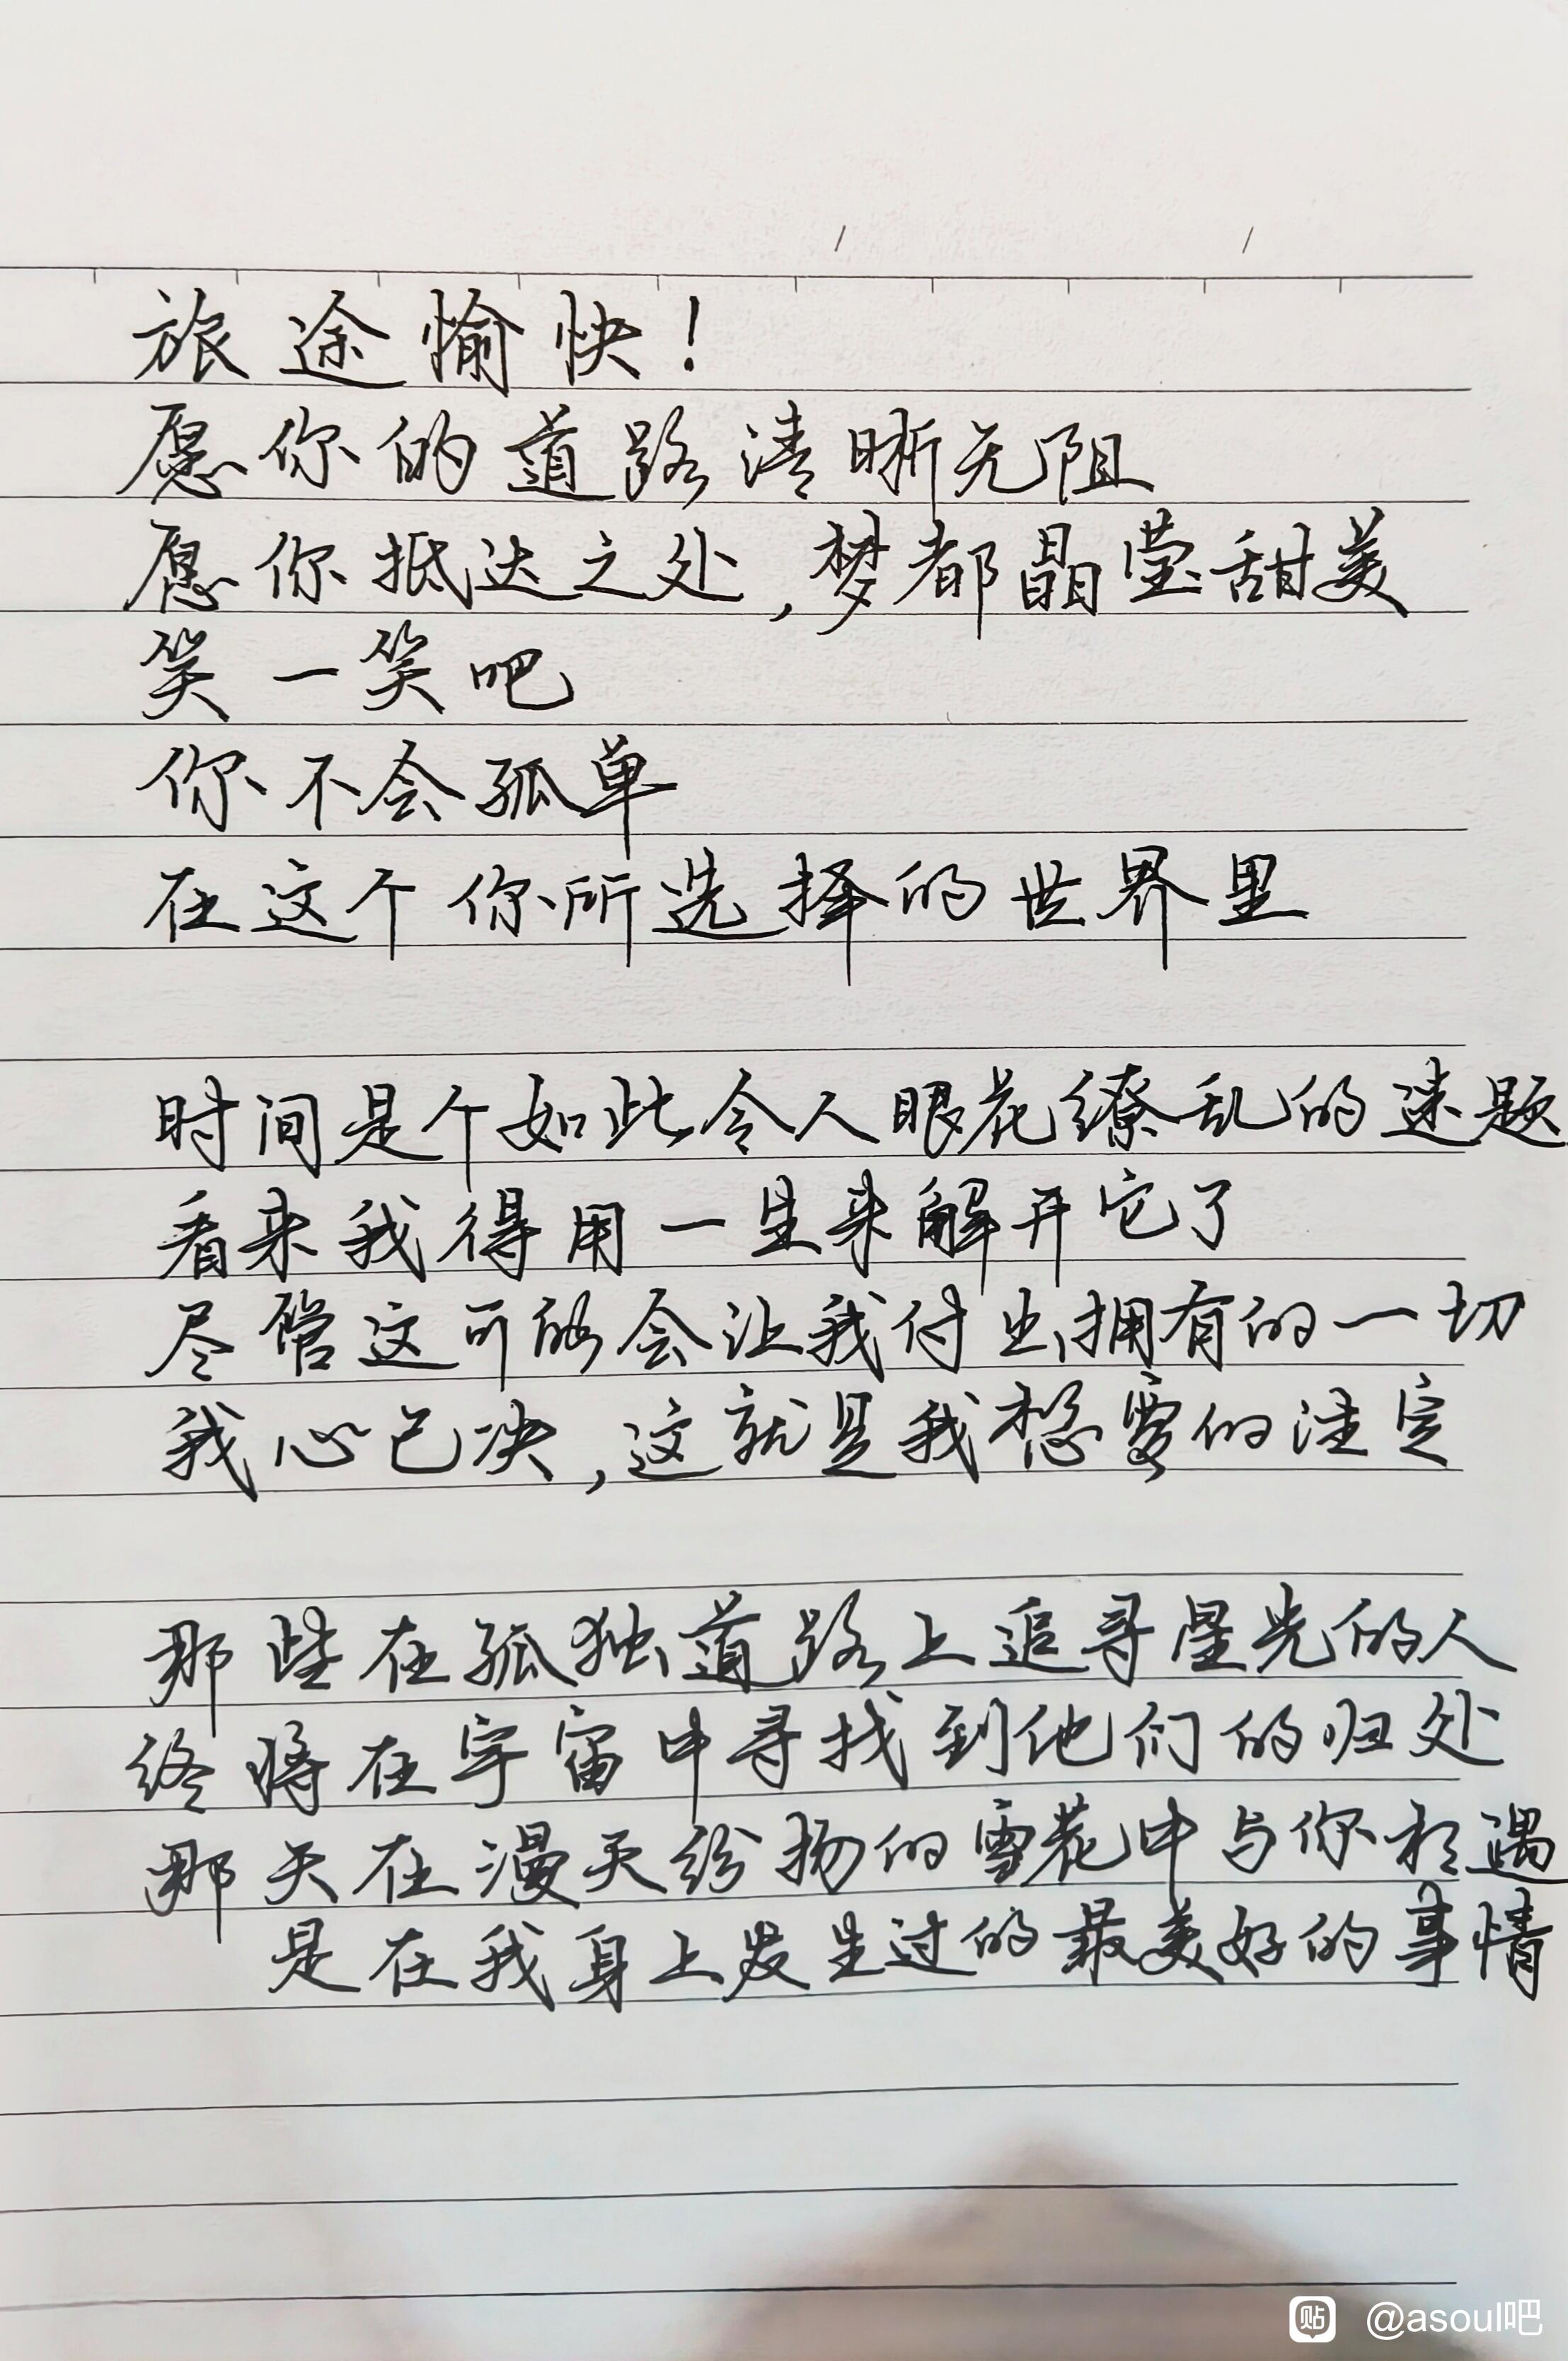 旅途愉快!
愿你的道路清晰无阻
愿你抵达之处,梦都晶莹甜美
笑一笑吧
你不会孤单
在这个你所选择的世界里
时间是个如此令人眼花缭乱的迷题
看来我得用一生来解开它了
尽管这可能会让我付出拥有的一切
我心已决,这就是我想要的注定
那些在孤独道路上追寻星光的人
终将在宇宙中寻找到他们的归处
那天在漫天纷扬的雪花中与你相遇
是在我身上发生过的最美好的事情
贴 @asoul吧